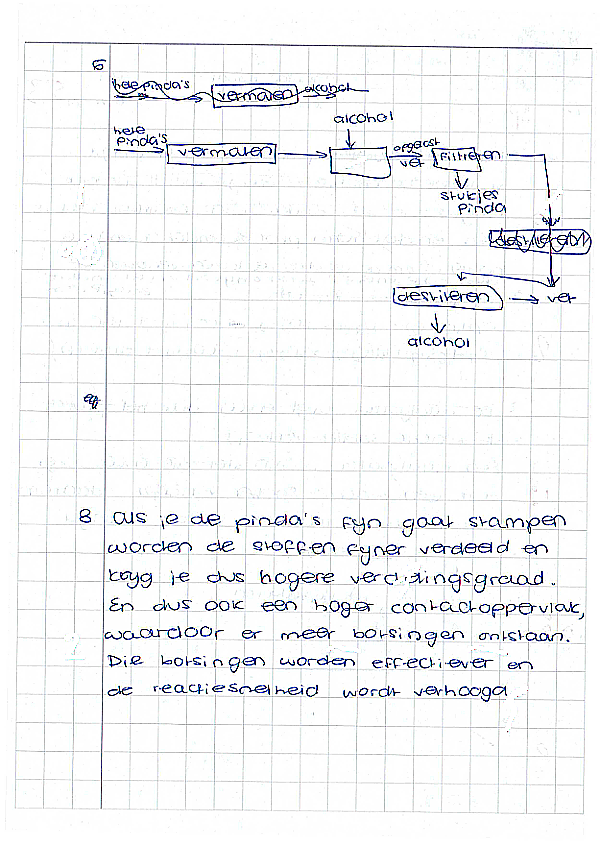 5
hele pinda's vermalen alcohol
alcohol
hele
pinda's vermalen opgelost
vet filtreren
stukjes
pinda
destilleren
destileren vet
alcohol
8 als je de pinda's fyn gaat stampen
worden de stoffen fyner verdeeld en
kryg je dus hogere verdelingsgraad.
En dus ook een hoger contactoppervlak,
waardoor er meer botsingen ontstaan.
Die botsingen worden effectiever en
de reactiesnelheid wordt verhoogd